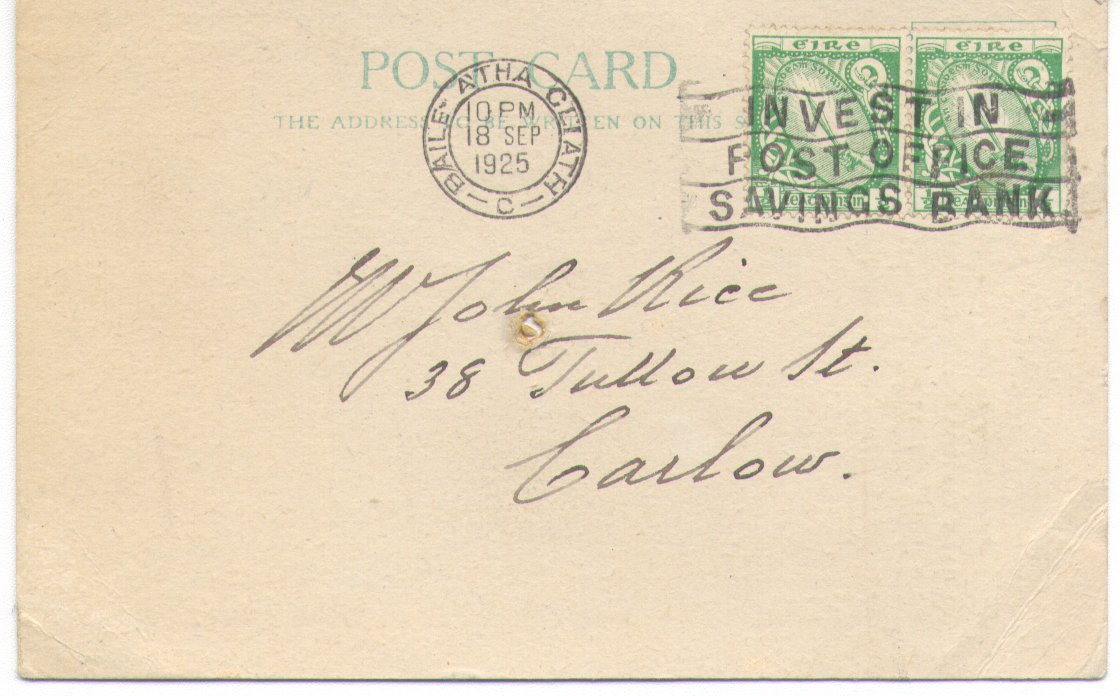 POST CARD
THE ADDRESS TO BE WRITTEN ON THIS S
BAILE ATHA CLIATH
10 PM
18 SEP
1925
C
éire éire
INVEST IN
POST OFFICE
SAVINGS BANK
Mr John Rice
38 Tullow St.
Carlow.